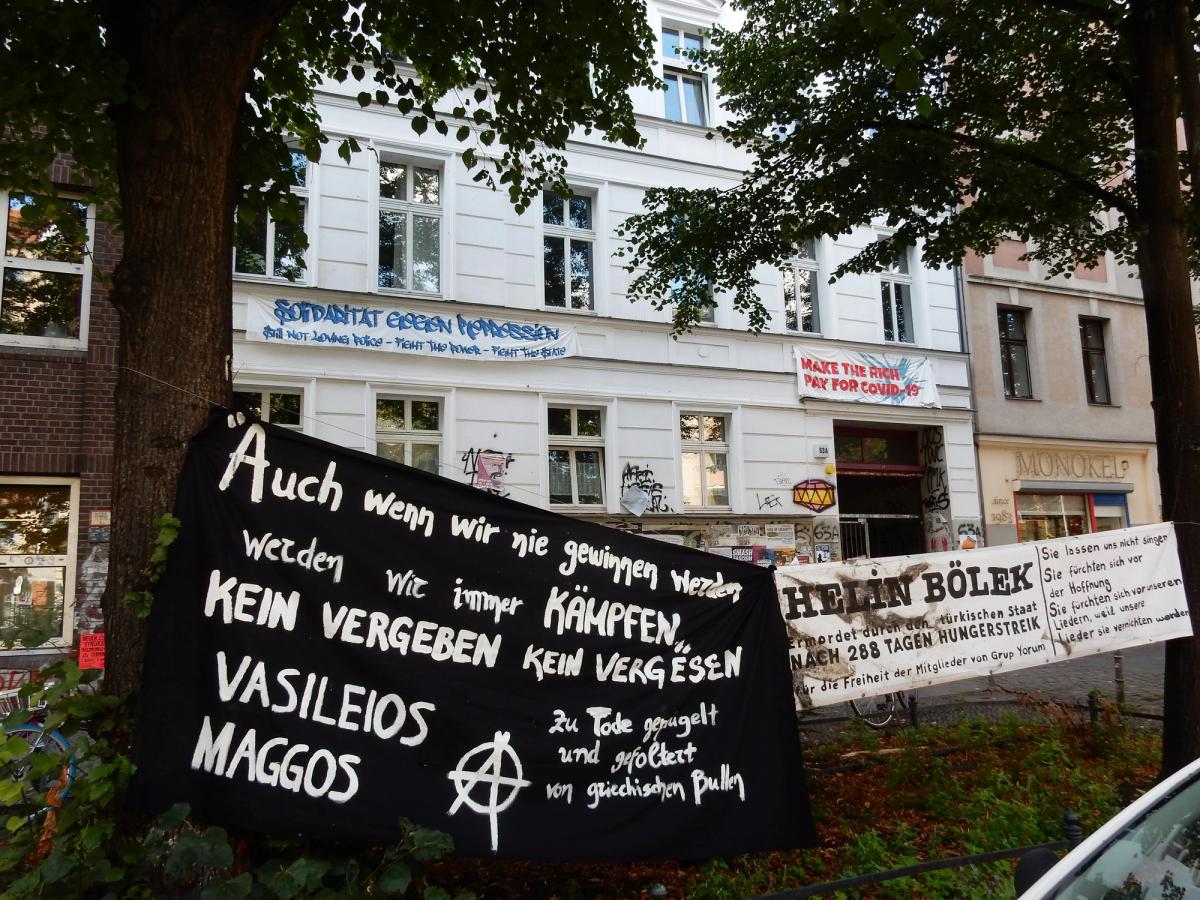 SOLIDARITÄT GEGEN REPRESSION
STILL NOT LOVING POLICE - FIGHT THE POWER - FIGHT THE STATE
MAKE THE RICH
PAY FOR COVID-19
53A
MONOKEL
since
1983
SMASH
"Auch wenn wir nie gewinnen werden
werden wir immer KÄMPFEN"
KEIN VERGEBEN KEIN VERGESSEN
VASILEIOS
MAGGOS
zu Tode geprügelt
und gefoltert
von griechischen Bullen
HELIN BÖLEK
Ermordet durch den türkischen Staat
NACH 288 TAGEN HUNGERSTREIK
für die Freiheit der Mitglieder von Grup Yorum
Sie lassen uns nicht singen
Sie fürchten sich vor
der Hoffnung
Sie fürchten sich vor unseren
Liedern, weil unsere
Lieder sie vernichten werden